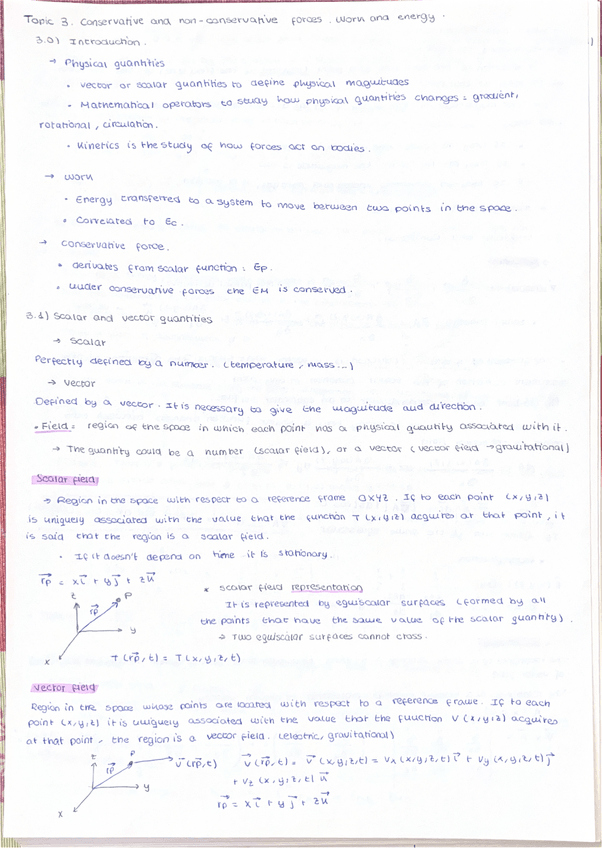 Topic 3. Conservative and non-conservative forces. Work and energy.
3.0) Introduction.
→ Physical quantities
• vector or scalar quantities to define physical magnitudes
• Mathematical operators to study how physical quantities changes: gradient,
rotational, circulation.
• Kinetics is the study of how forces act on bodies.
→ Work
• Energy transferred to a system to move between two points in the space.
• Correlated to Ec.
→ Conservative force.
• derivates from scalar function: Ep.
• under conservative forces the EM is conserved.
3.1) Scalar and vector quantities
→ Scalar
Perfectly defined by a number. (temperature, mass...)
→ Vector
Defined by a vector. It is necessary to give the magnitude and direction.
• Field = region of the space in which each point has a physical quantity associated with it.
→ The quantity could be a number (scalar field), or a vector (vector field → gravitational)
Scalar field
→ Region in the space with respect to a reference frame OXYZ. If to each point (x,y,z)
is uniquely associated with the value that the function T(x,y,z) acquires at that point, it
is said that the region is a scalar field.
• If it doesn't depend on time it is stationary.
r⃗p = x i⃗ + y j⃗ + z u⃗
z
r⃗p
P
y
x
T(r⃗p,t) = T(x,y,z,t)
* scalar field representation
It is represented by equiscalar surfaces (formed by all
the points that have the same value of the scalar quantity).
→ Two equiscalar surfaces cannot cross.
Vector field
Region in the space whose points are located with respect to a reference frame. If to each
point (x,y,z) it is uniquely associated with the value that the function V(x,y,z) acquires
at that point, the region is a vector field. (electric, gravitational)
z
P
r⃗p
v⃗(r⃗p,t)
y
x
v⃗(r⃗p,t) = v⃗(x,y,z,t) = Vx(x,y,z,t) i⃗ + Vy(x,y,z,t) j⃗
+ Vz(x,y,z,t) u⃗
r⃗p = x i⃗ + y j⃗ + z u⃗